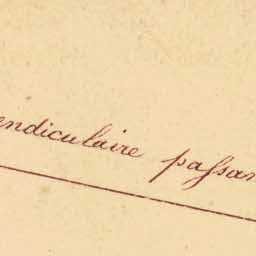 endiculaire paſsan